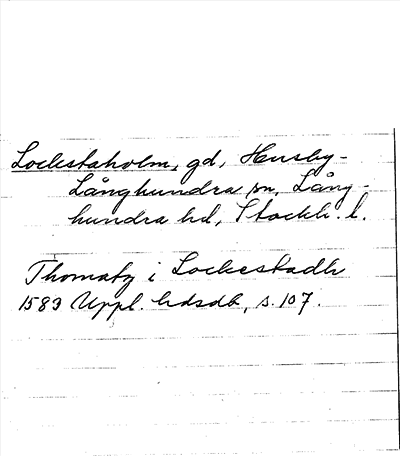 Lockstaholm, gd, Husby-
Långhundra sn, Lång-
hundra hd, Stockh. l.
Thomatz i Lockestadh
1589 Uppl. hdsdb, s. 107.